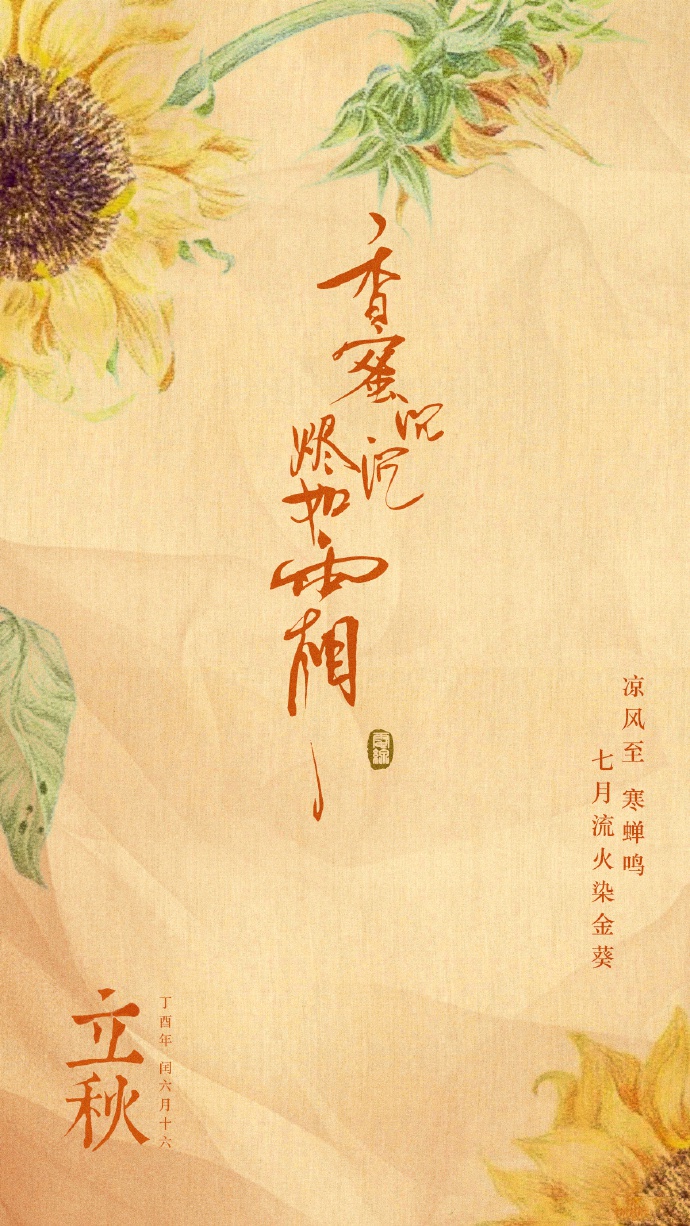 香蜜沉沉
烬如霜
凉风至 寒蝉鸣
七月流火染金葵
立秋
丁酉年 闰六月十六